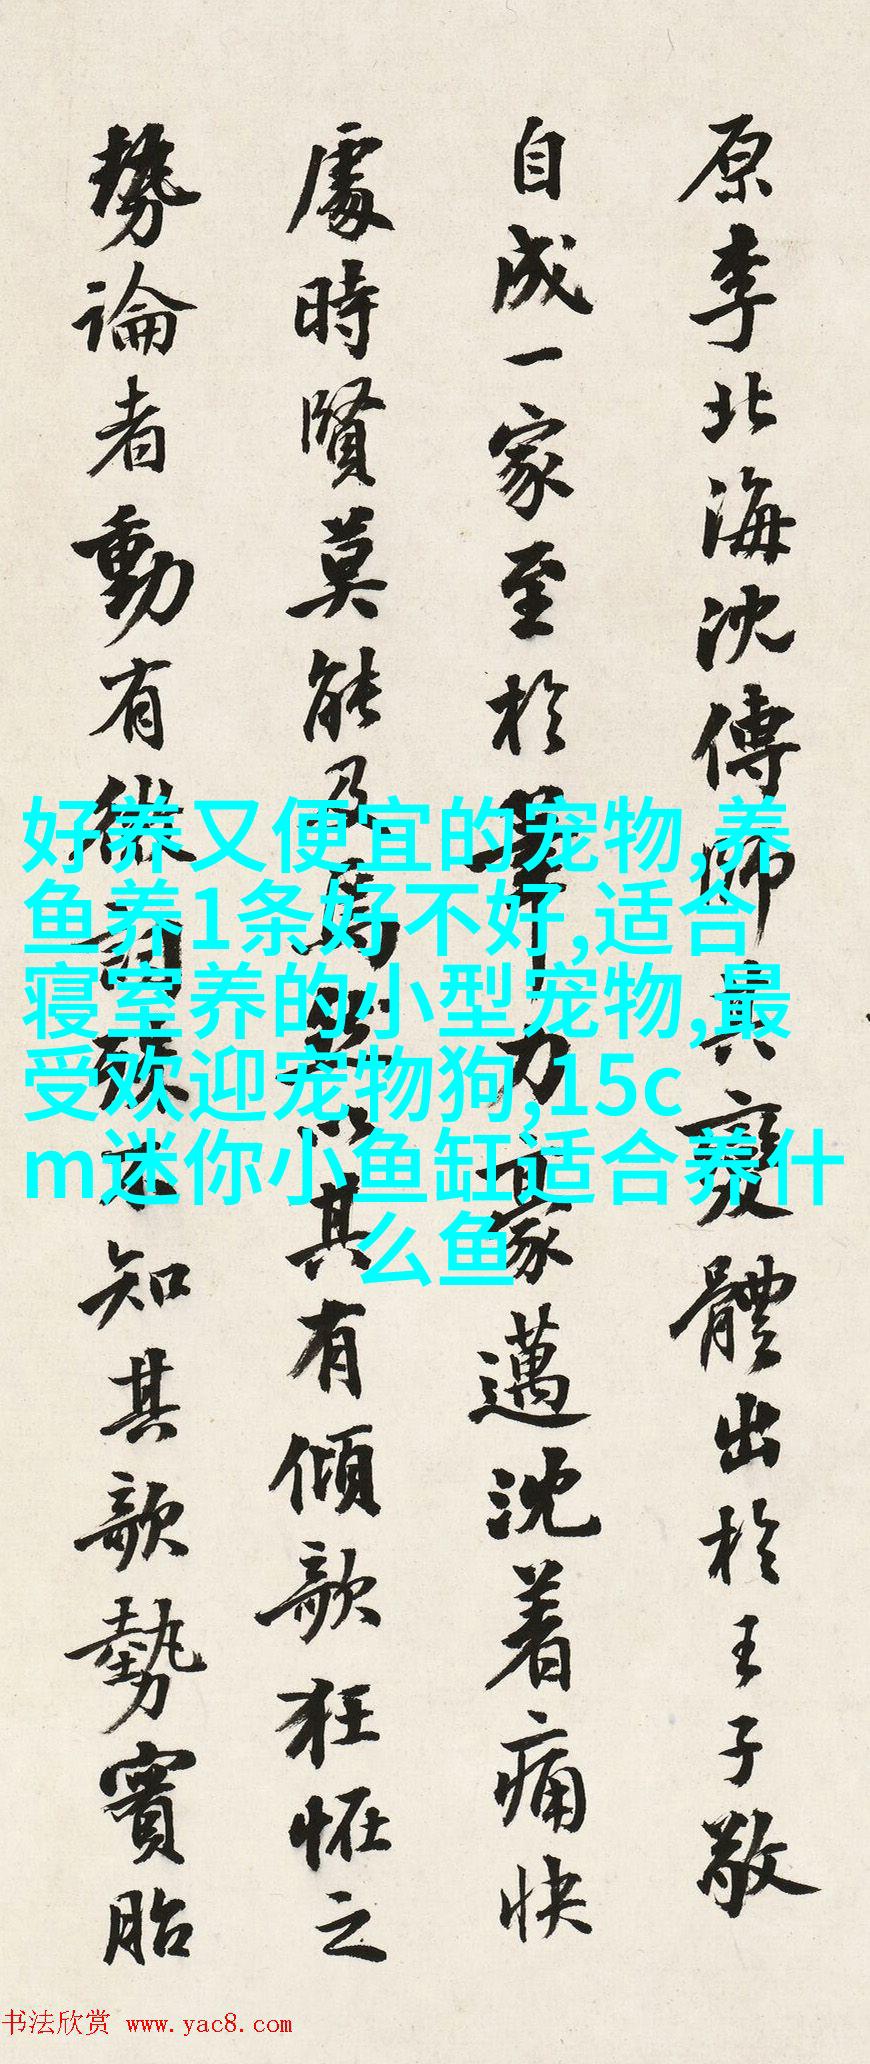 原李北海沈傳師其變體出於王子敬
自成一家至於筆力豪邁沈着痛快
處時賢莫能及焉然以其有傾欹狂怪之
勢論者動有微詞殊不知其欹勢實胎
好养又便宜的宠物,养
鱼养1条好不好,适合
寝室养的小型宠物,最
受欢迎宠物狗,15c
m迷你小鱼缸适合养什
么鱼
书法欣赏 www.yac8.com